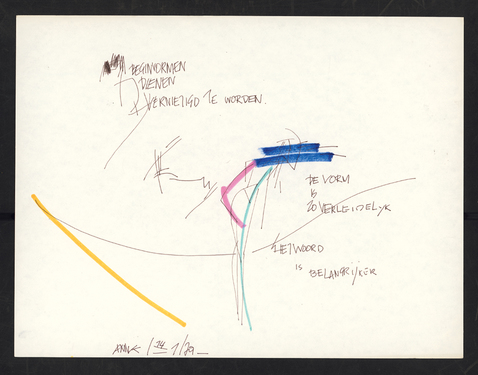 BEGINVORMEN
DIENEN
VERNIETIGD TE WORDEN.
DE VORM
IS
ZO VERLEIDELIJK
HET WOORD
IS BELANGRIJKER